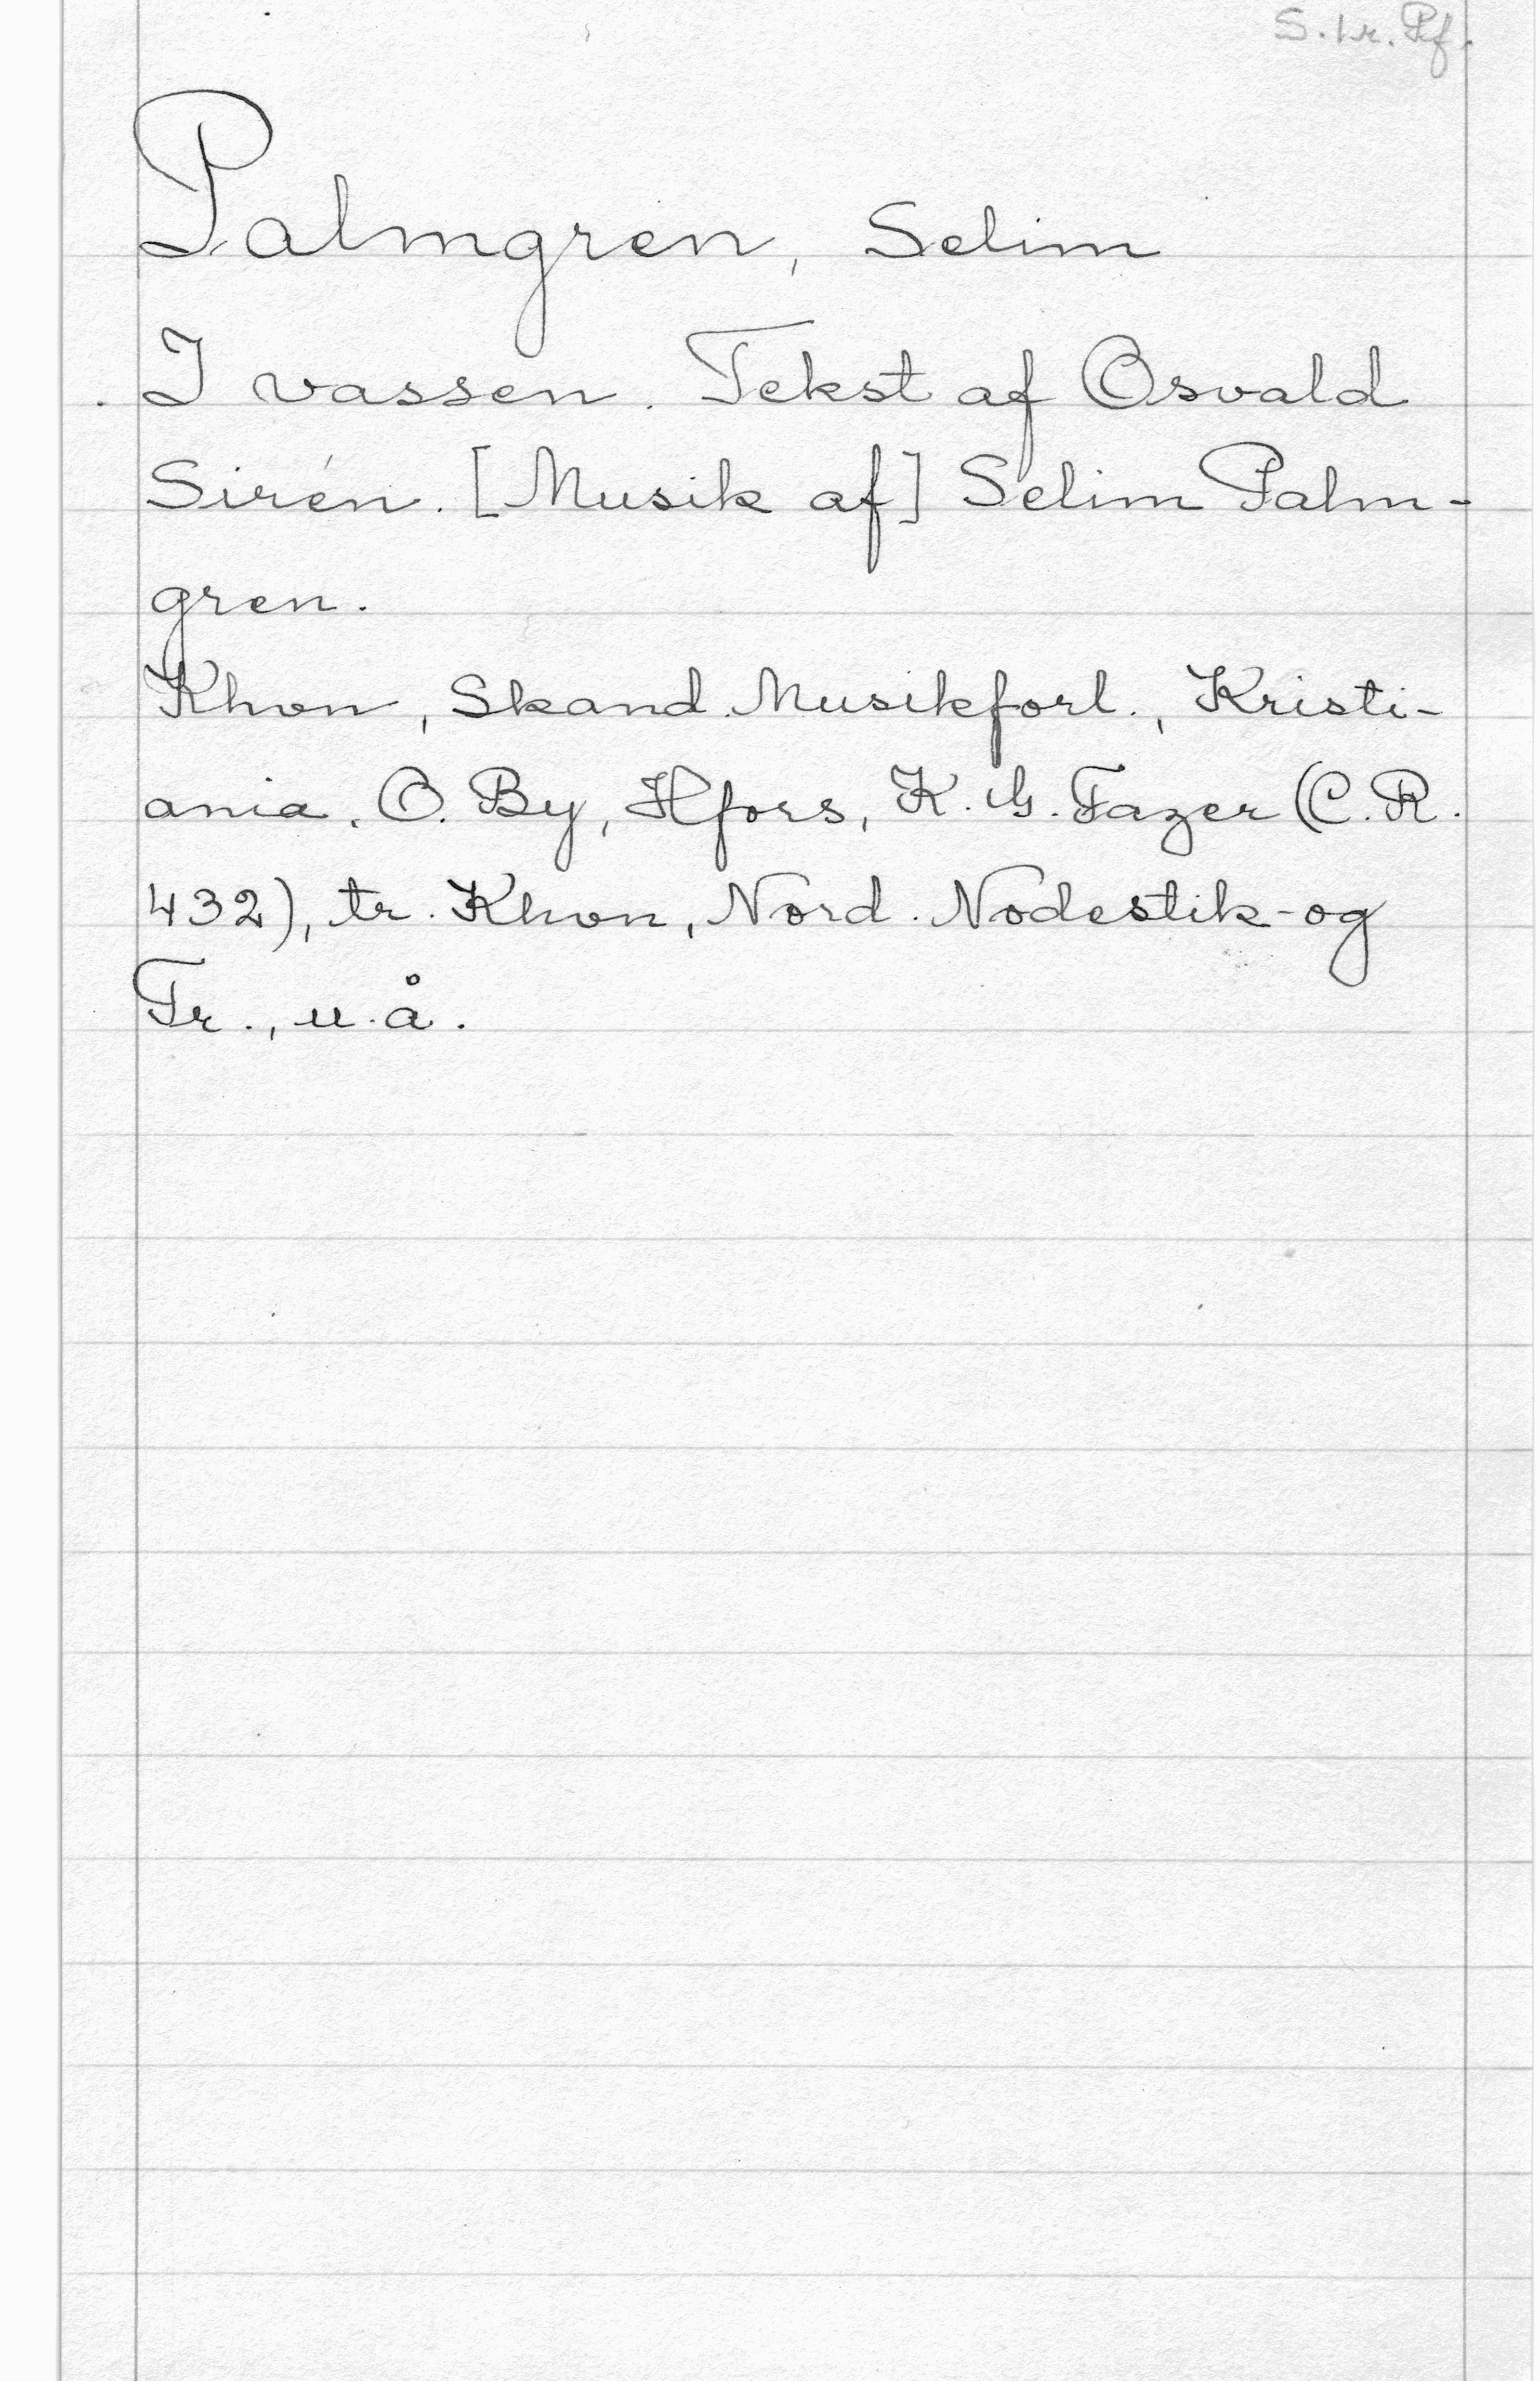 S. 1 r. Pf.
Palmgren, Selim
I vassen. Tekst af Osvald
Sirén. [Musik af] Selim Palm-
gren.
Khvn, Skand. Musikforl., Kristi-
ania, O. By, Hfors, K. G. Fazer (C. R.
432), tr. Khvn, Nord. Nodestik- og
Tr., u. å.